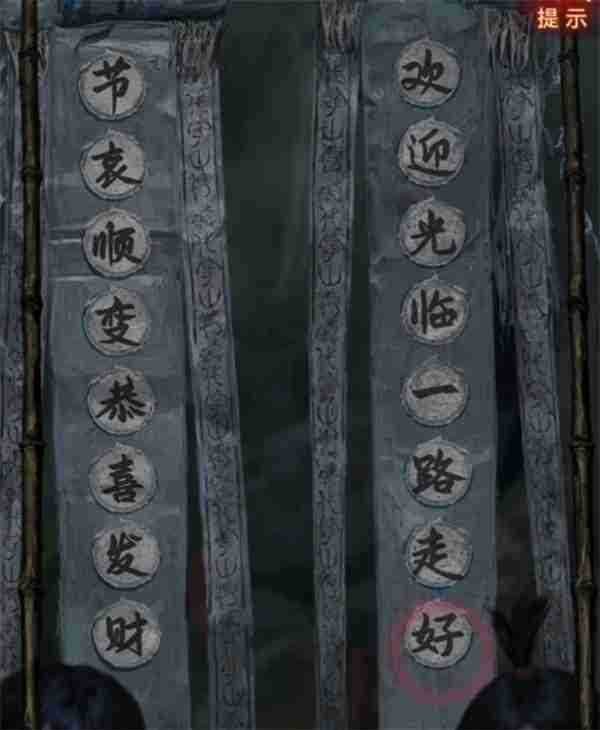 提示
欢迎光临一路走好
节哀顺变恭喜发财